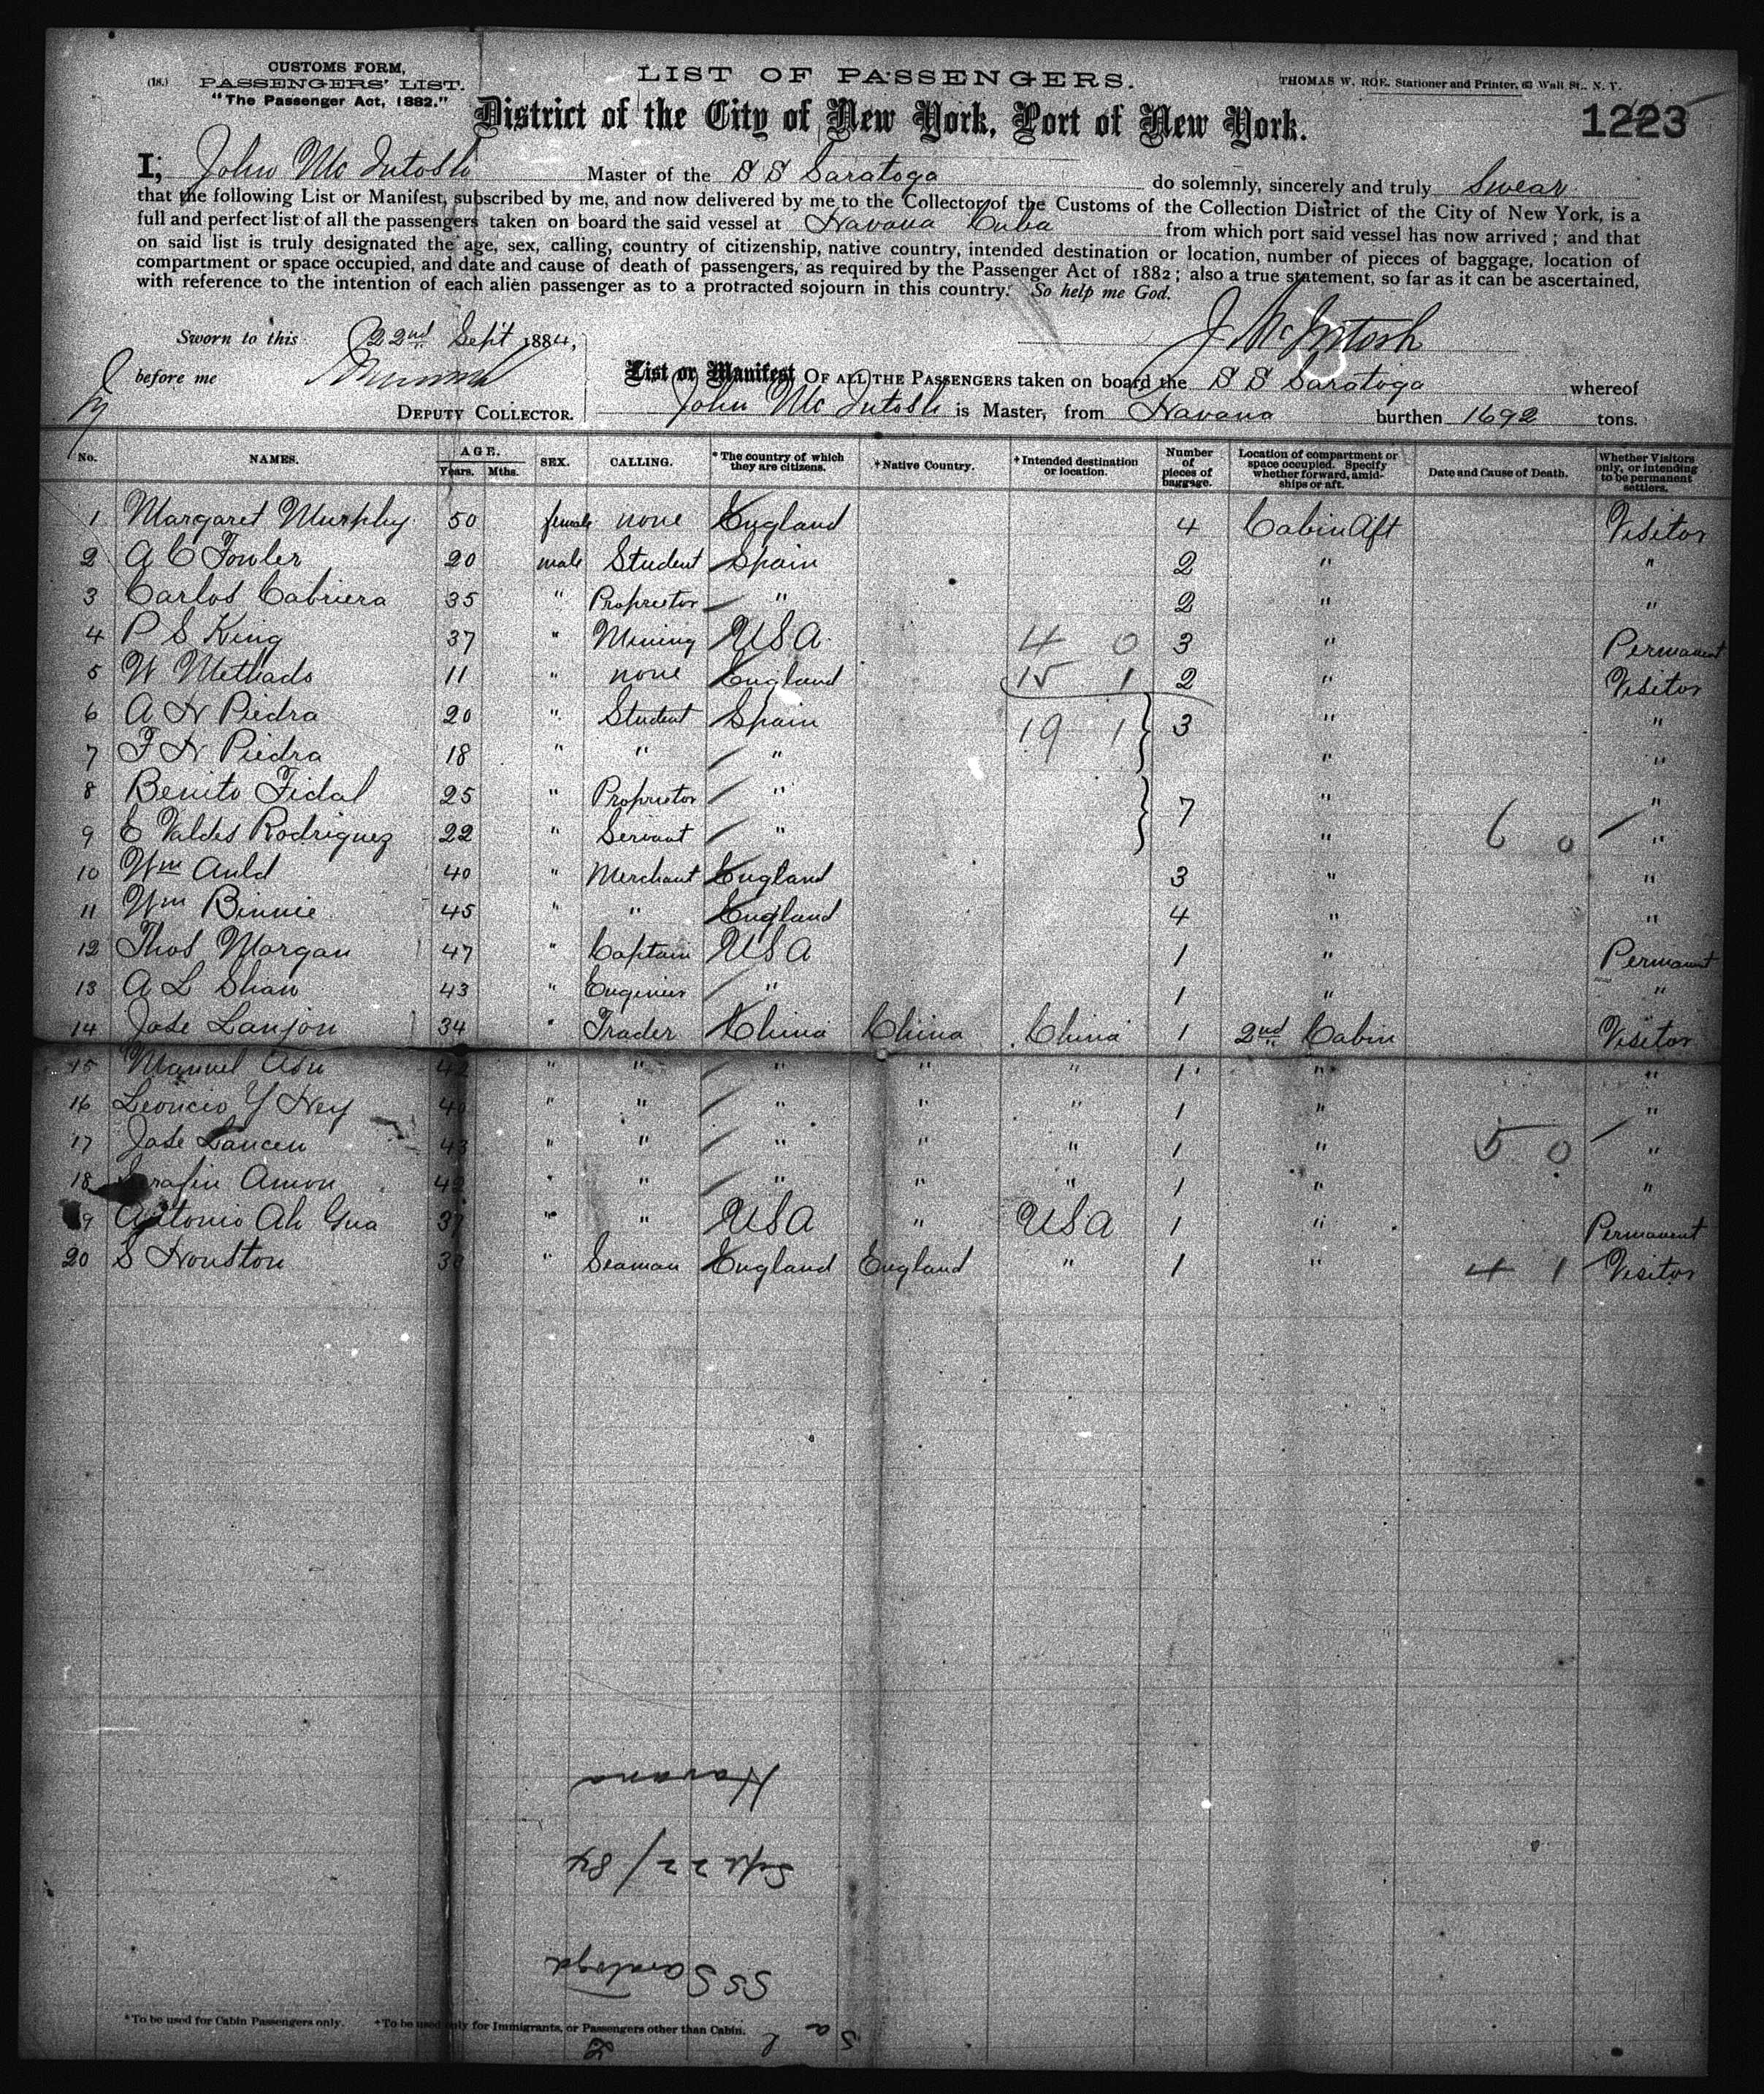 (18.)
CUSTOMS FORM,
PASSENGERS' LIST.
"The Passenger Act, 1882."
LIST OF PASSENGERS.
THOMAS W. ROE, Stationer and Printer, 63 Wall St., N. Y.
District of the City of New York, Port of New York.
1223
I, John McIntosh Master of the S S Saratoga do solemnly, sincerely and truly Swear
that the following List or Manifest, subscribed by me, and now delivered by me to the Collector of the Customs of the Collection District of the City of New York, is a
full and perfect list of all the passengers taken on board the said vessel at Havana Cuba from which port said vessel has now arrived; and that
on said list is truly designated the age, sex, calling, country of citizenship, native country, intended destination or location, number of pieces of baggage, location of
compartment or space occupied, and date and cause of death of passengers, as required by the Passenger Act of 1882; also a true statement, so far as it can be ascertained,
with reference to the intention of each alien passenger as to a protracted sojourn in this country. So help me God.
Sworn to this 22nd Sept 1884,
J McIntosh
before me
DEPUTY COLLECTOR.
List or Manifest OF ALL THE PASSENGERS taken on board the S S Saratoga whereof
John McIntosh is Master, from Havana burthen 1692 tons.
No. NAMES. AGE. Years. Mths. SEX. CALLING. *The country of which they are citizens. +Native Country. +Intended destination or location. Number of pieces of baggage. Location of compartment or space occupied. Specify whether forward, amidships or aft. Date and Cause of Death. Whether Visitors only, or intending to be permanent settlers.
1 Margaret Murphy 50 female none England 4 Cabin Aft Visitor
2 A C Fowler 20 male Student Spain 2 " "
3 Carlos Cabriera 35 " Proprietor " 2 " "
4 P S King 37 " Mining USA 4 0 3 " Permanent
5 W Methads 11 " none England 15 1 2 " Visitor
6 A N Piedra 20 " Student Spain 19 1 3 " "
7 F N Piedra 18 " " " " "
8 Benito Fidal 25 " Proprietor " 7 " "
9 E Valdes Rodriguez 22 " Servant " " 6 0 "
10 Wm Auld 40 " Merchant England 3 " "
11 Wm Binnie 45 " " England 4 " "
12 Thos Morgan 47 " Captain USA 1 " Permanent
13 A L Shaw 43 " Engineer " 1 " "
14 Jose Lanjon 34 " Trader China China China 1 2nd Cabin Visitor
15 Manuel Asn 42 " " " " " 1 " "
16 Leoncio Y Ney 40 " " " " " 1 " "
17 Jose Lancen 43 " " " " " 1 " 5 0 "
18 Serafin Amon 42 " " " " " 1 " "
19 Antonio Ah Gua 37 " " USA " USA 1 " Permanent
20 S Houston 38 " Seaman England England " 1 " 4 1 Visitor
Havana
Sept 22/84
SS Saratoga
*To be used for Cabin Passengers only. +To be used only for Immigrants, or Passengers other than Cabin.